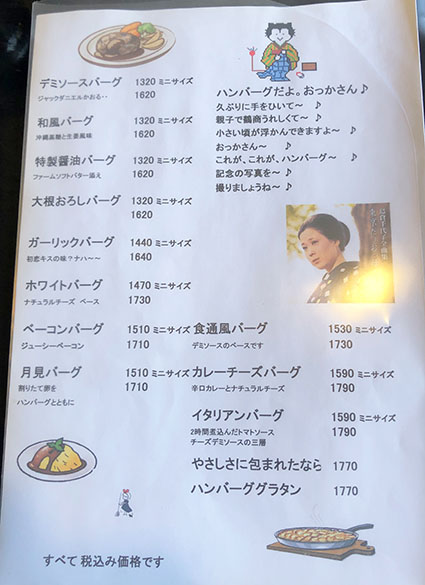 デミソースバーグ 1320 ミニサイズ
ジャックダニエルかおる・・ 1620
和風バーグ 1320 ミニサイズ
沖縄黒糖と生姜風味 1620
特製醤油バーグ 1320 ミニサイズ
ファームソフトバター添え 1620
大根おろしバーグ 1320 ミニサイズ
1620
ガーリックバーグ 1440 ミニサイズ
初恋キスの味？ナハ～～ 1640
ホワイトバーグ 1470 ミニサイズ
ナチュラルチーズ ベース 1730
ベーコンバーグ 1510 ミニサイズ
ジューシーベーコン 1710
月見バーグ 1510 ミニサイズ
割りたて卵を 1710
ハンバーグとともに
ハンバーグだよ。おっかさん♪
久ぶりに手をひいて～ ♪
親子で鶴商うれしくて～ ♪
小さい頃が浮かんできますよ～ ♪
おっかさん～ ♪
これが、これが、ハンバーグ～ ♪
記念の写真を～ ♪
撮りましょうね～ ♪
食通風バーグ 1530 ミニサイズ
デミソースのベースです 1730
カレーチーズバーグ 1590 ミニサイズ
辛口カレーとナチュラルチーズ 1790
イタリアンバーグ 1590 ミニサイズ
2時間煮込んだトマトソース 1790
チーズデミソースの三層
やさしさに包まれたなら 1770
ハンバーググラタン 1770
すべて 税込み価格です